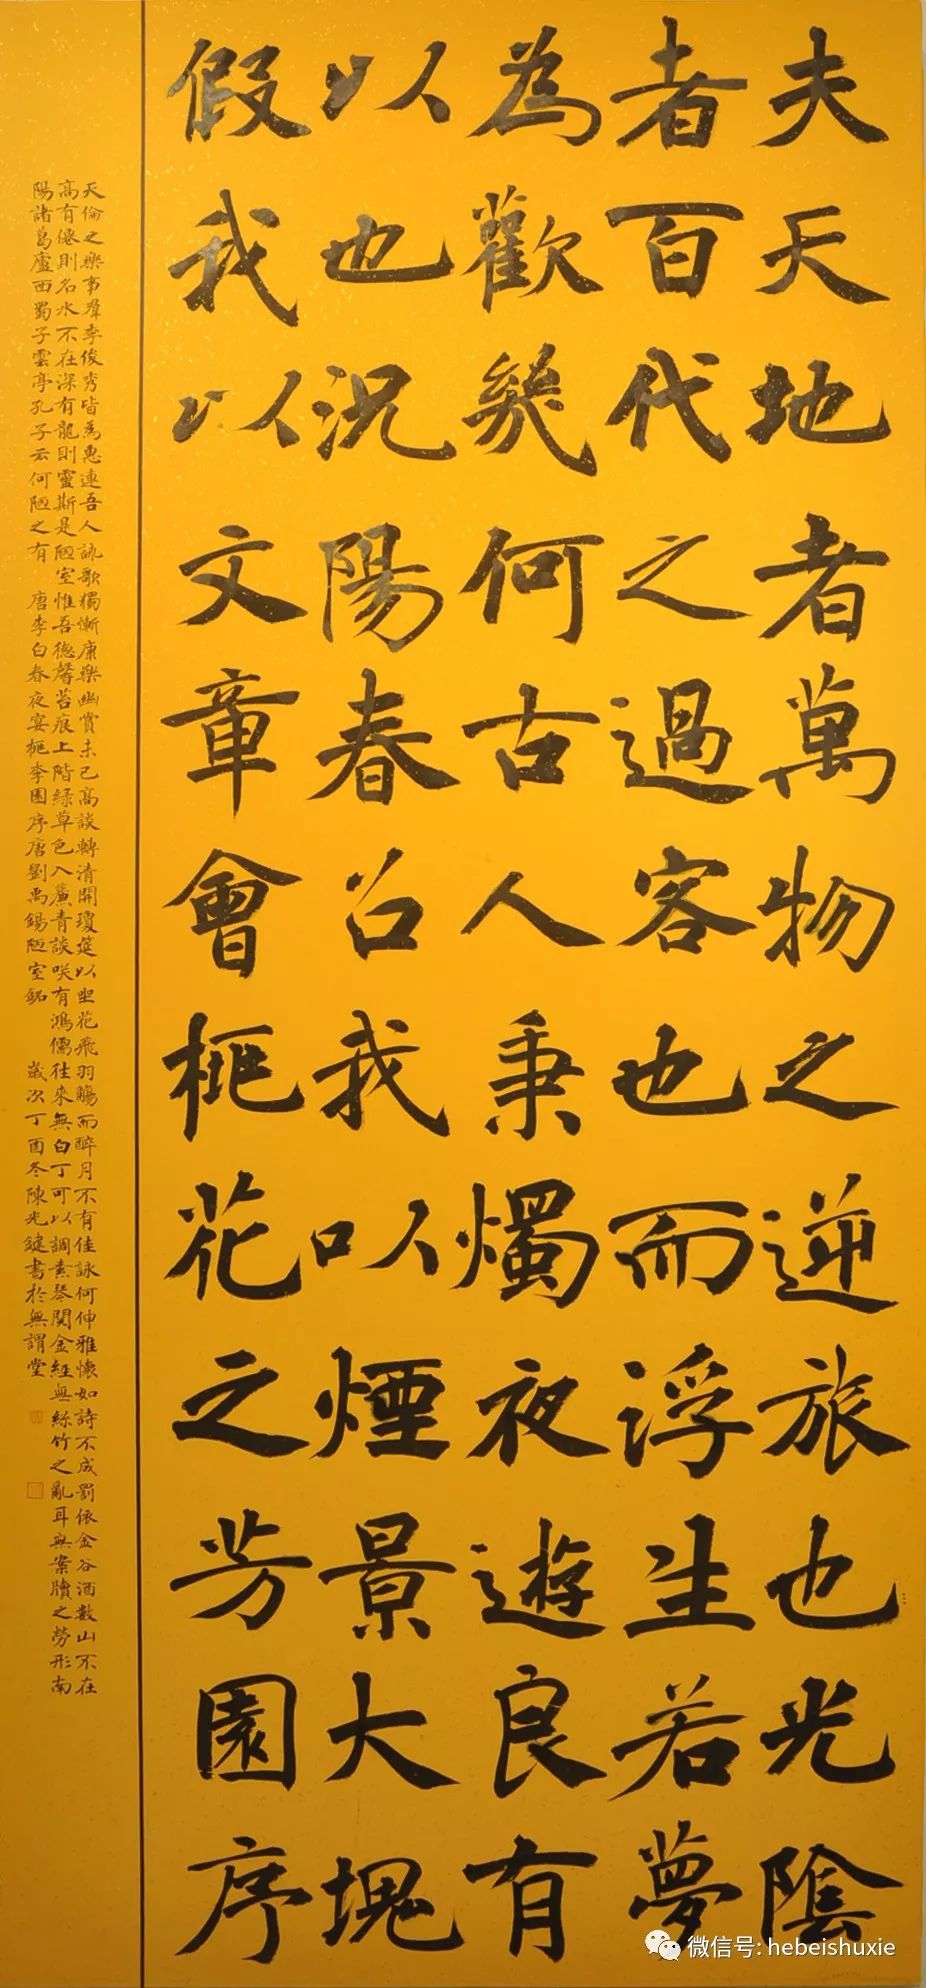 夫天地者萬物之逆旅也光陰
者百代之過客也而浮生若夢
為歡幾何古人秉燭夜遊良有
以也況陽春召我以煙景大塊
假我以文章會桃花之芳園序
天倫之樂事羣季俊秀皆為惠連吾人詠歌獨慚康樂幽賞未已高談轉清開瓊筵以坐花飛羽觴而醉月不有佳詠何伸雅懷如詩不成罰依金谷酒數山不在
高有僊則名水不在深有龍則靈斯是陋室惟吾德馨苔痕上階綠草色入簾青談咲有鴻儒往來無白丁可以調素琴閱金經無絲竹之亂耳無案牘之勞形南
陽諸葛廬西蜀子雲亭孔子云何陋之有 唐李白春夜宴桃李園序唐劉禹錫陋室銘 歲次丁酉冬陳光鍵書於無謂堂
微信号: hebeishuxie